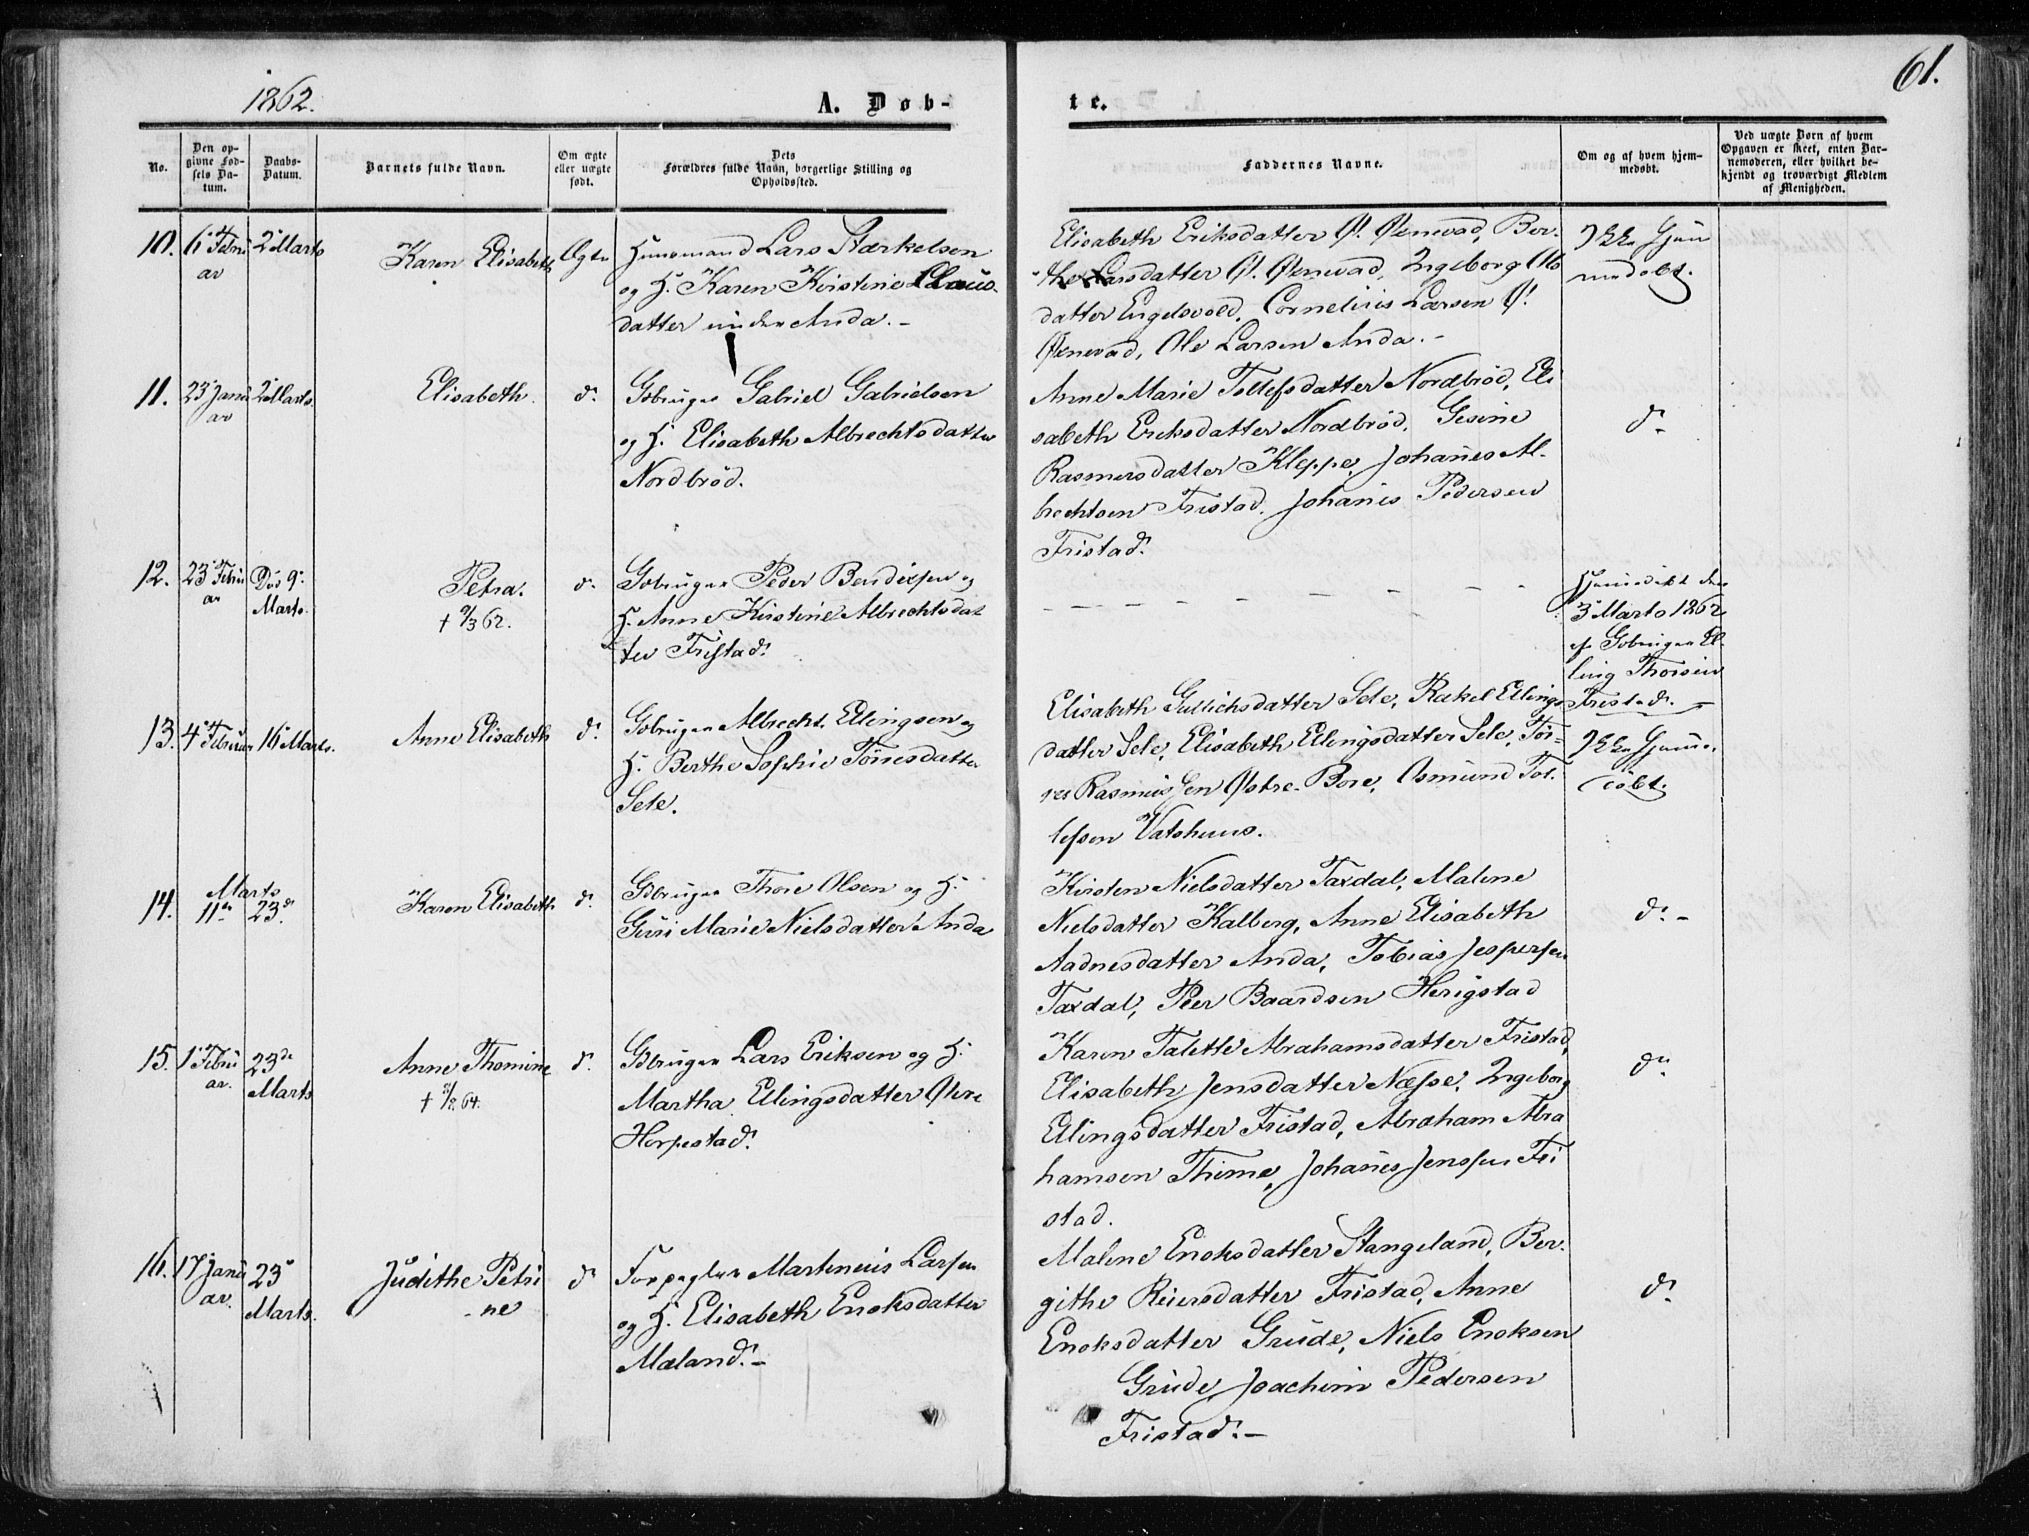 1862.
A. Døb-
te.
61.
No.
Den op-
givne Fød-
sels Da-
tum.
Daabs-
Datum.
Barnets fulde Navn.
Om ægte
eller uægte
født.
Dets
Forældres fulde Navn, borgerlige Stilling og
Opholdssted.
Faddernes Navne.
Om og af hvem hjem-
medøbt.
Ved uægte Børn af hvem
Opgaven er skeet, enten Bar-
nemoderen, eller hvilket be-
kjendt og troværdigt Medlem
af Menigheden.
10.
6 Febru
ar
2 Marts
Karen Elisabeth
Ægte
Huusmand Lars Stærkelsen
og H. Karen Kirstine Claus-
datter under Anda.-
Elisabeth Eriksdatter Ø. Øxnevad, Ber-
the Larsdatter Ø. Øxnevad, Ingeborg Ols
datter Engelsvold, Cornelius Larsen Ø.
Øxnevad, Ole Larsen Anda.-
Ikke Hjem
medøbt.
11.
23 Janu
ar
2 Marts.
Elisabeth.
do
Gbruger Gabriel Gabrielsen
og H. Elisabeth Albrechtsdatter
Nordbrød.
Anne Marie Tollefsdatter Nordbrød, Eli
sabeth Eriksdatter Nordbrød, Gesine
Rasmusdatter Kleppe, Johanes Al-
brechtsen Fristad, Johanes Pedersen
Fristad.
do
12.
23 Febru
ar
Død 9
Marts.
Petra.
† 9/3 62.
do
Gbruger Peder Bendixsen og
H. Anne Kirstine Albrechtsdat
ter Fristad.
Hjemedøbt den
3 Marts 1862
af Gbruger El-
ling Thorsen
Fristad.
13.
4 Februar
16 Marts.
Anne Elisabeth
do
Gbruger Albrecht Ellingsen og
H. Berthe Sophie Tønesdatter
Sele.
Elisabeth Gullichsdatter Sele, Rakel Ellings
datter Sele, Elisabeth Ellingsdatter Sele, Tør-
res Rasmussen Østre-Bore, Osmund Tol-
lefsen Vatshuus.
Ikke Hjeme-
døbt.
14.
Marts
11te 23d
Karen Elisabeth
do
Gbruger Thore Olsen og H.
Guri Marie Nielsdatter Anda
Kirsten Nielsdatter Taxdal, Malene
Nielsdatter Kalberg, Anne Elisabeth
Aadnesdatter Anda, Tobias Jespersen
Taxdal, Peer Baardsen Herigstad
do-
15.
1 Febru
ar.
23de
Marts
Anne Thomine
do
Gbruger Lars Eriksen og H.
Martha Ellingsdatter Østre
Horpestad.
Karen Talette Abrahamsdatter Fristad,
Elisabeth Jensdatter Næsse, Ingeborg
Ellingsdatter Fristad, Abraham Abra
hamsen Thime, Johanes Jenssen Fri
stad.
do
16.
17 Janu
ar.
23
Marts.
Judithe Petri
-ne
do
Forpagter Martinius Larsen
og H. Elisabeth Enoksdatter
Mæland.-
Malene Enoksdatter Stangeland, Ber-
githe Reiersdatter Fristad, Anne
Enoksdatter Grude, Niels Enoksen
Grude, Joachim Pedersen
Fristad.-
do